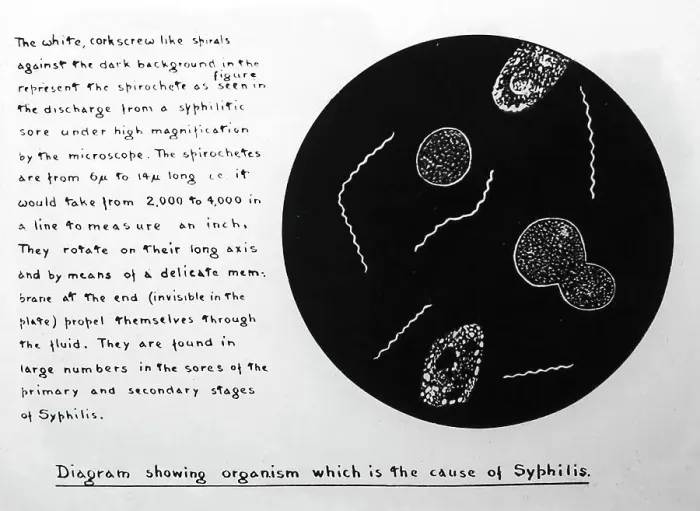 The white, corkscrew like spirals
against the dark background in the
figure
represent the spirochete as seen in
the discharge from a syphilitic
sore under high magnification
by the microscope. The spirochetes
are from 6µ to 14µ long i.e. it
would take from 2,000 to 4,000 in
a line to measure an inch.
They rotate on their long axis
and by means of a delicate mem-
brane at the end (invisible in the
plate) propel themselves through
the fluid. They are found in
large numbers in the sores of the
primary and secondary stages
of Syphilis.
Diagram showing organism which is the cause of Syphilis.